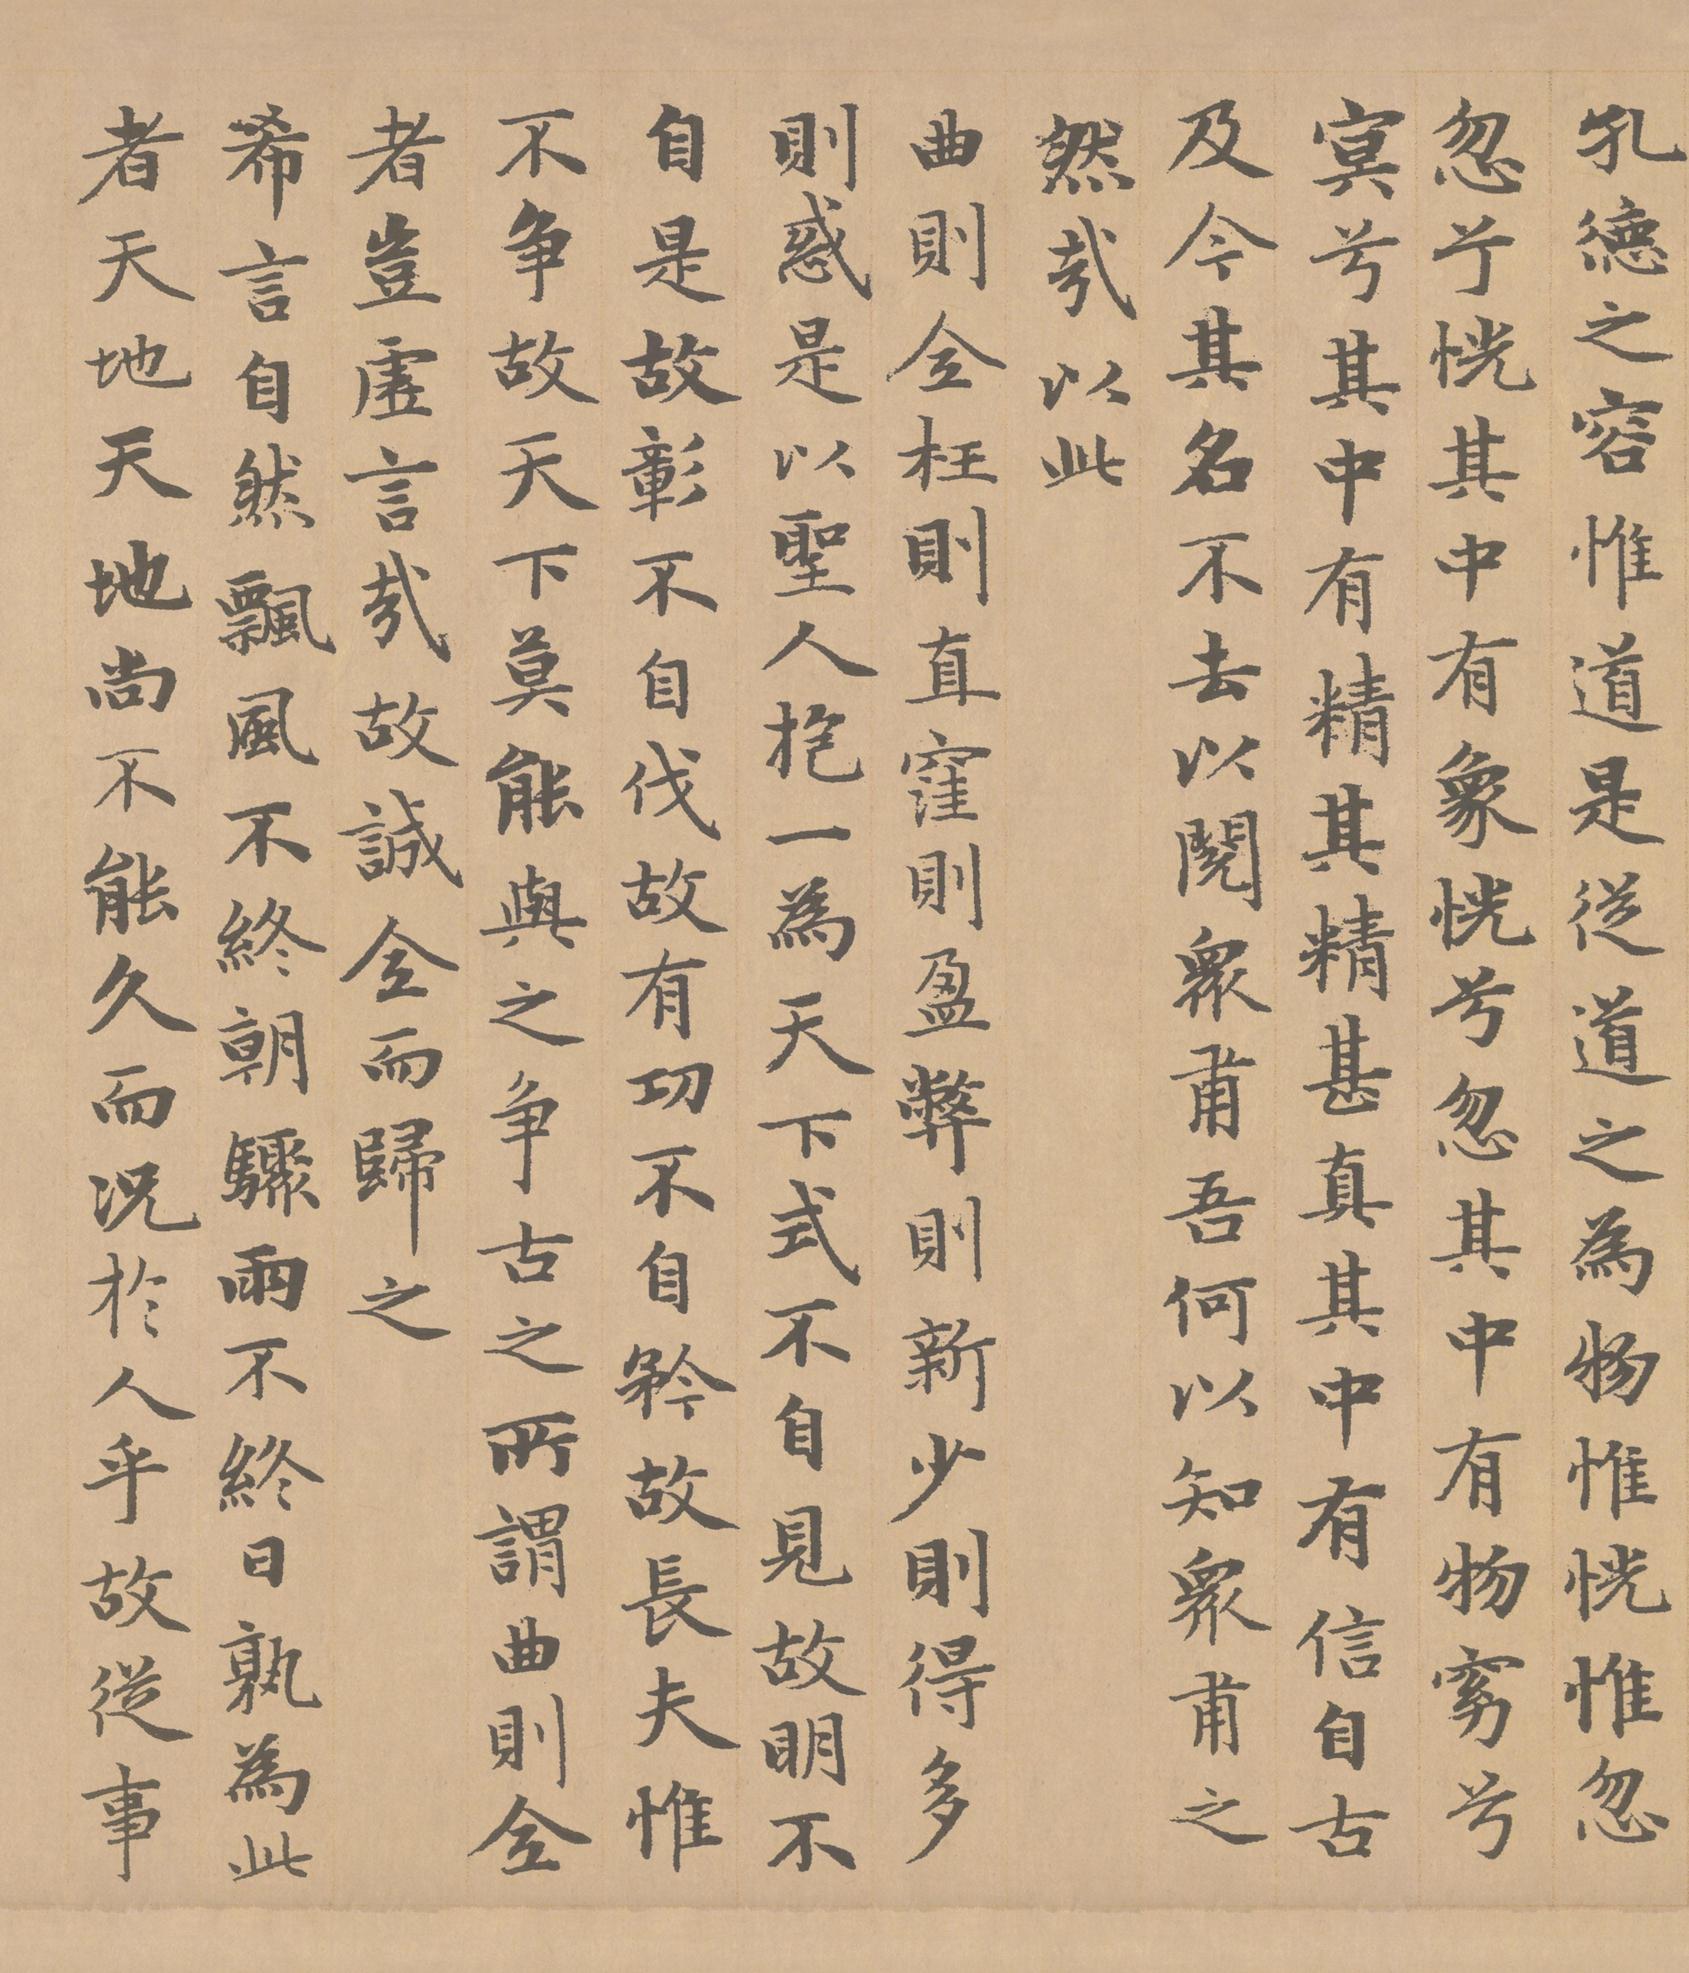 孔德之容惟道是從道之為物惟恍惟忽
忽兮恍其中有象恍兮忽其中有物窈兮
寘兮其中有精其精甚真其中有信自古
及今其名不去以閱眾甫吾何以知眾甫之
然哉以此
曲則全枉則直窪則盈弊則新少則得多
則惑是以聖人抱一為天下式不自見故明不
自是故彰不自伐故有功不自矜故長夫惟
不争故天下莫能與之争古之所謂曲則全
者豈虛言哉故誠全而歸之
希言自然飄風不終朝驟雨不終日孰為此
者天地天地尚不能久而況於人乎故從事